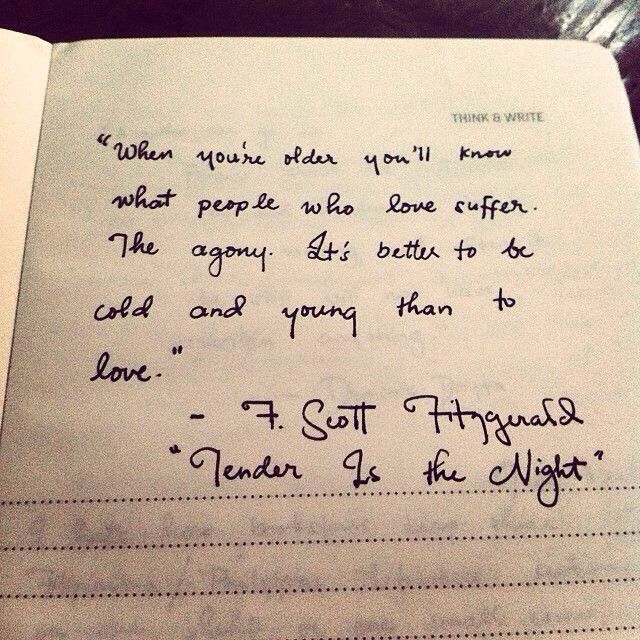 THINK & WRITE
"When you're older you'll know
what people who love suffer.
The agony. It's better to be
cold and young than to
love."
- F. Scott Fitzgerald
"Tender Is the Night"